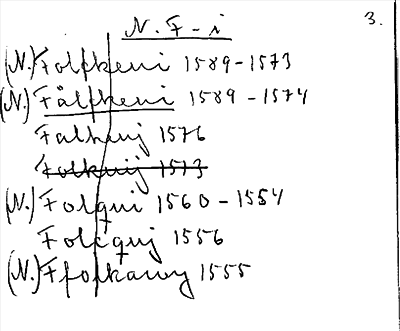 3.
N. F-i
(N.) Folfkeni 1589-1573
(N.) Fålfkeni 1589-1574
Falkuj 1576
Folkuij 1573
(N.) Folqui 1560-1554
Folcquj 1556
(N.) Ffolkawy 1555